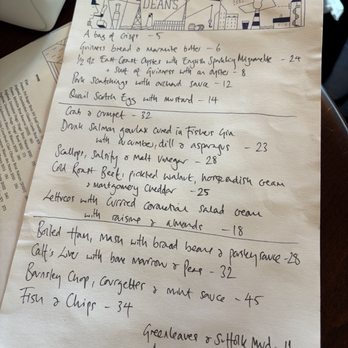 DEANS
A bag of crisps - 5
Guinness bread & Marmite butter - 6
1/2 doz East Coast Oysters with English Sparkling Mignonette - 24
+ shot of Guinness with an oyster - 8
Pork scratchings with orchard sauce - 12
Quail Scotch Egg with mustard - 14
Crab & crumpet - 32
Drunk Salmon gravlax cured in Fishers Gin
with cucumber, dill & asparagus - 23
Scallops, Salsify & Malt Vinegar - 28
Cold Roast Beef, pickled walnut, horseradish cream
& montgomery cheddar - 25
Lettuces with Curried Coronation Salad cream
with raisins & almonds - 18
Boiled Ham, mash with broad beans & parsley sauce - 28
Calf's Liver with bone marrow & Peas - 32
Barnsley Chop, courgettes & mint sauce - 45
Fish & Chips - 34
Greenleaves & Suffolk Mud